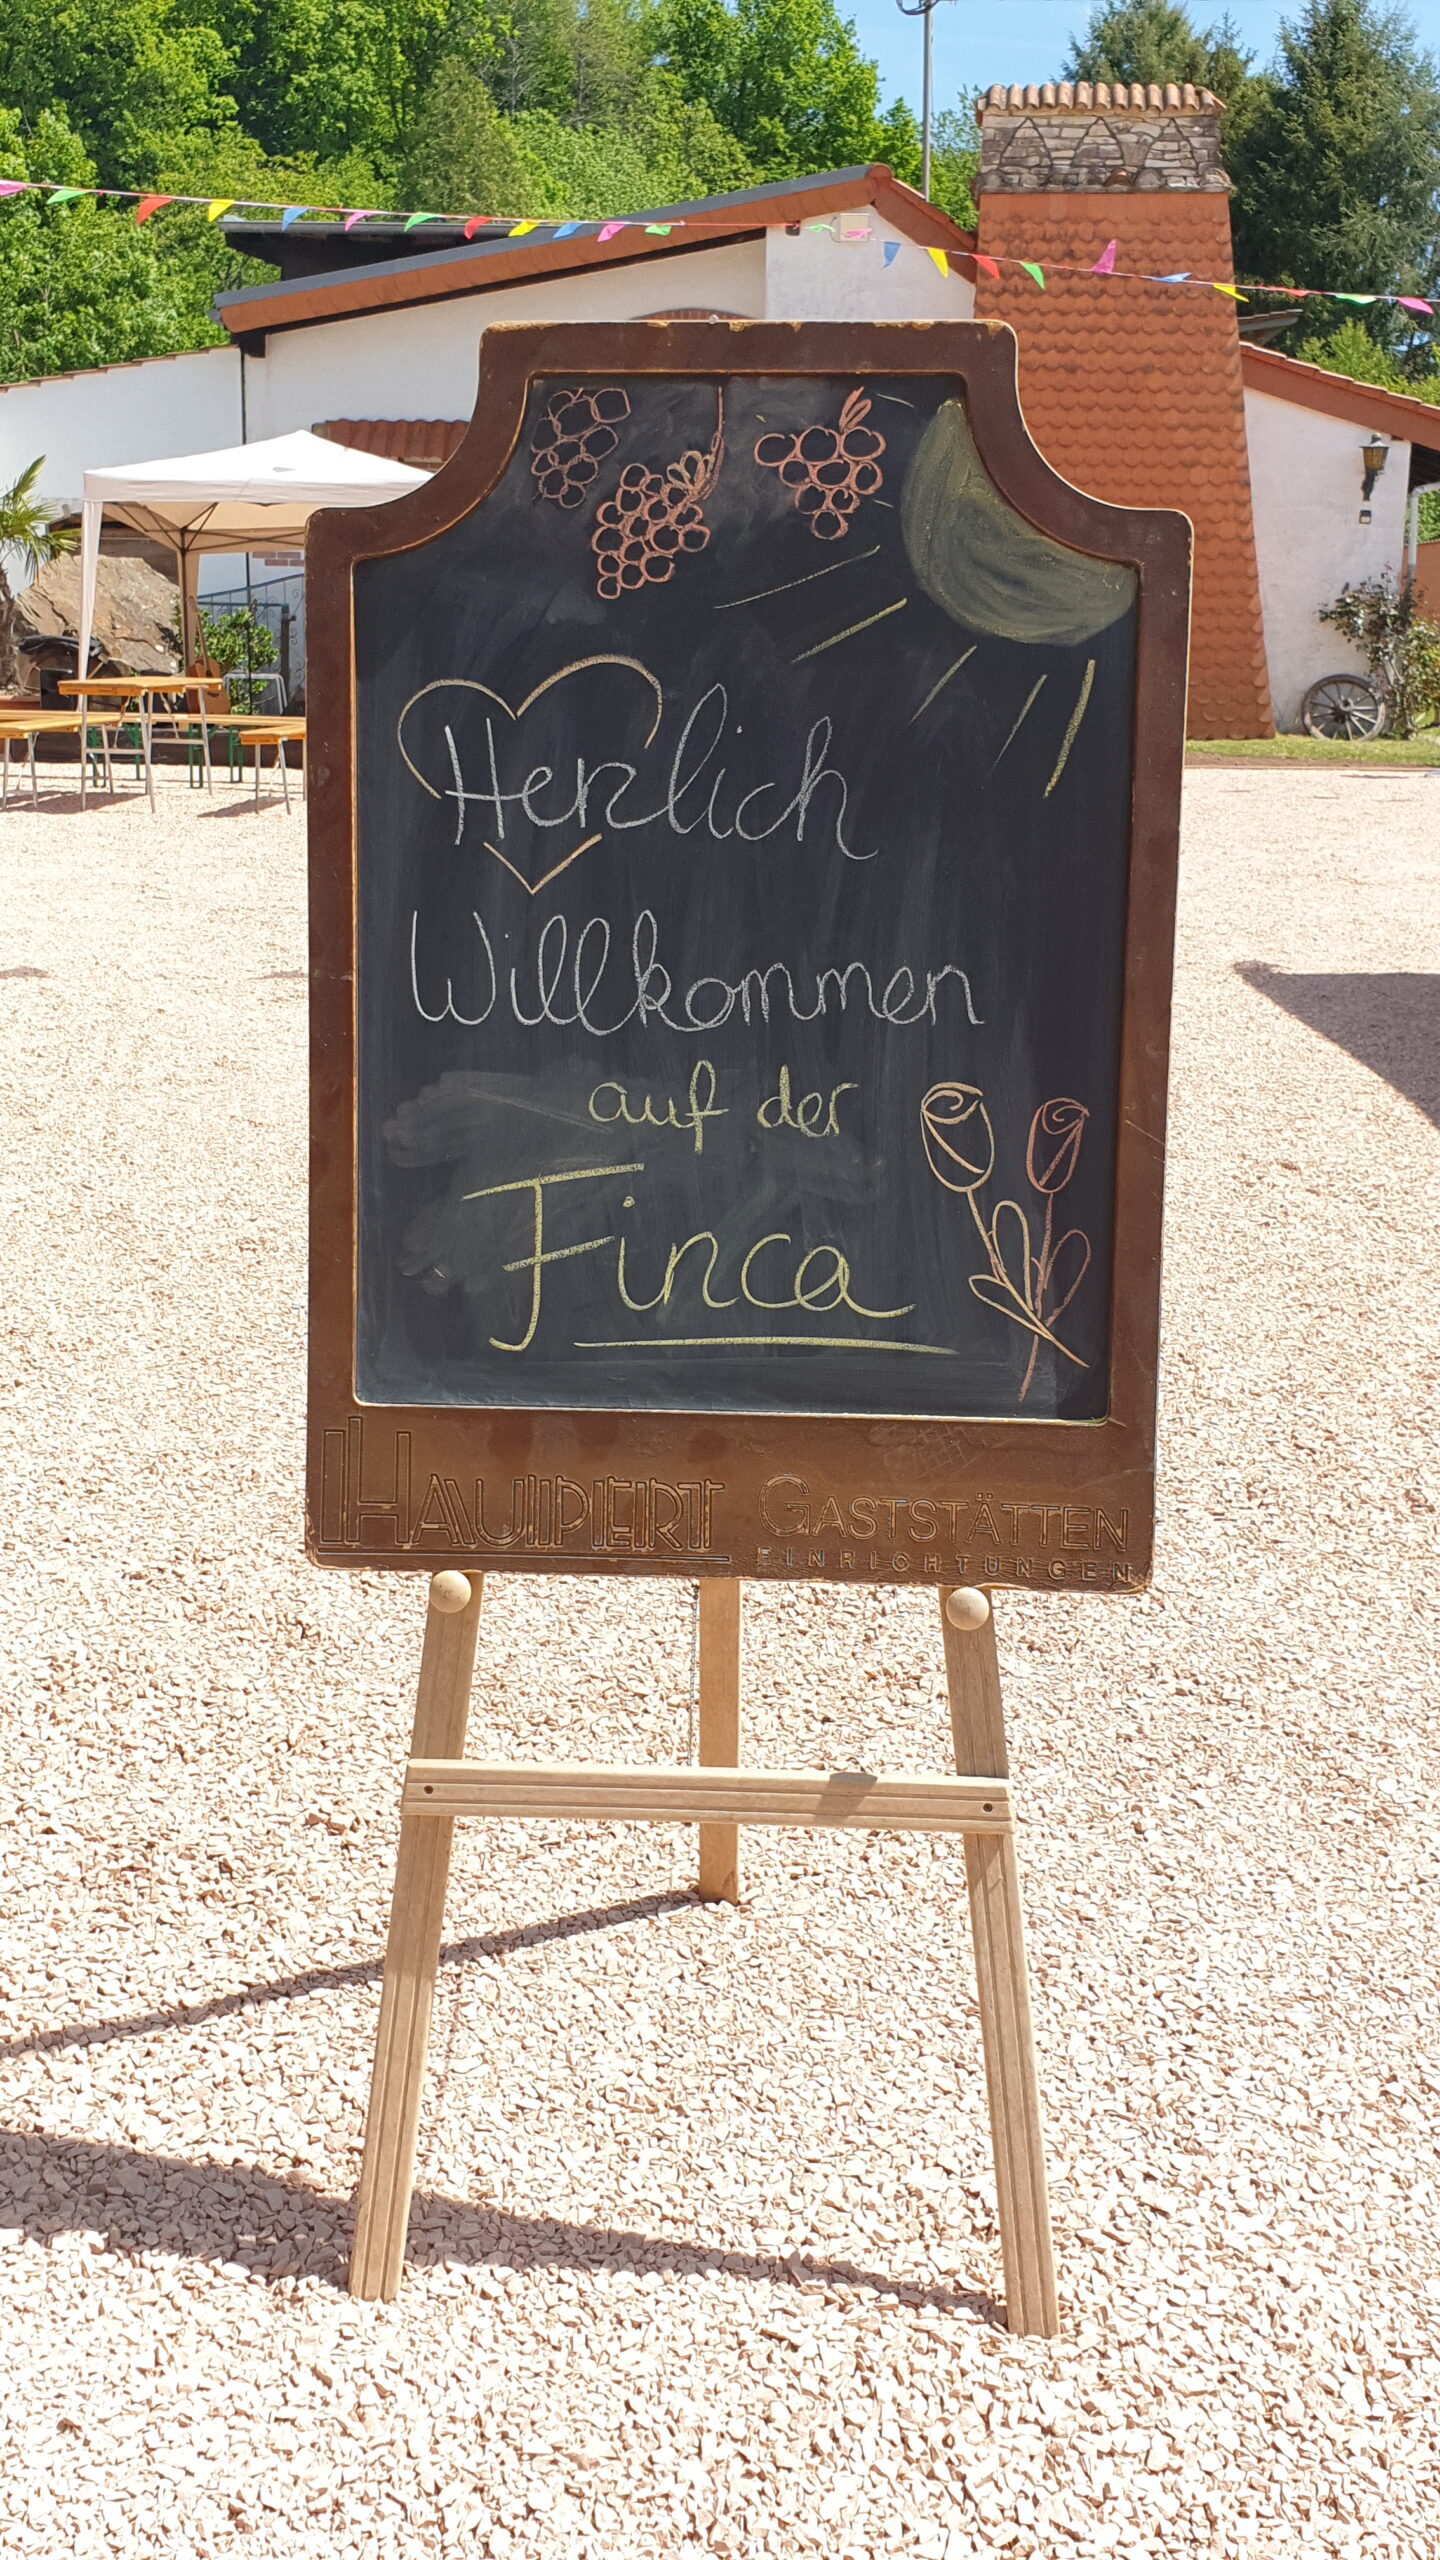 Herzlich
Willkommen
auf der
Finca
HAUPERT GASTSTÄTTEN
EINRICHTUNGEN